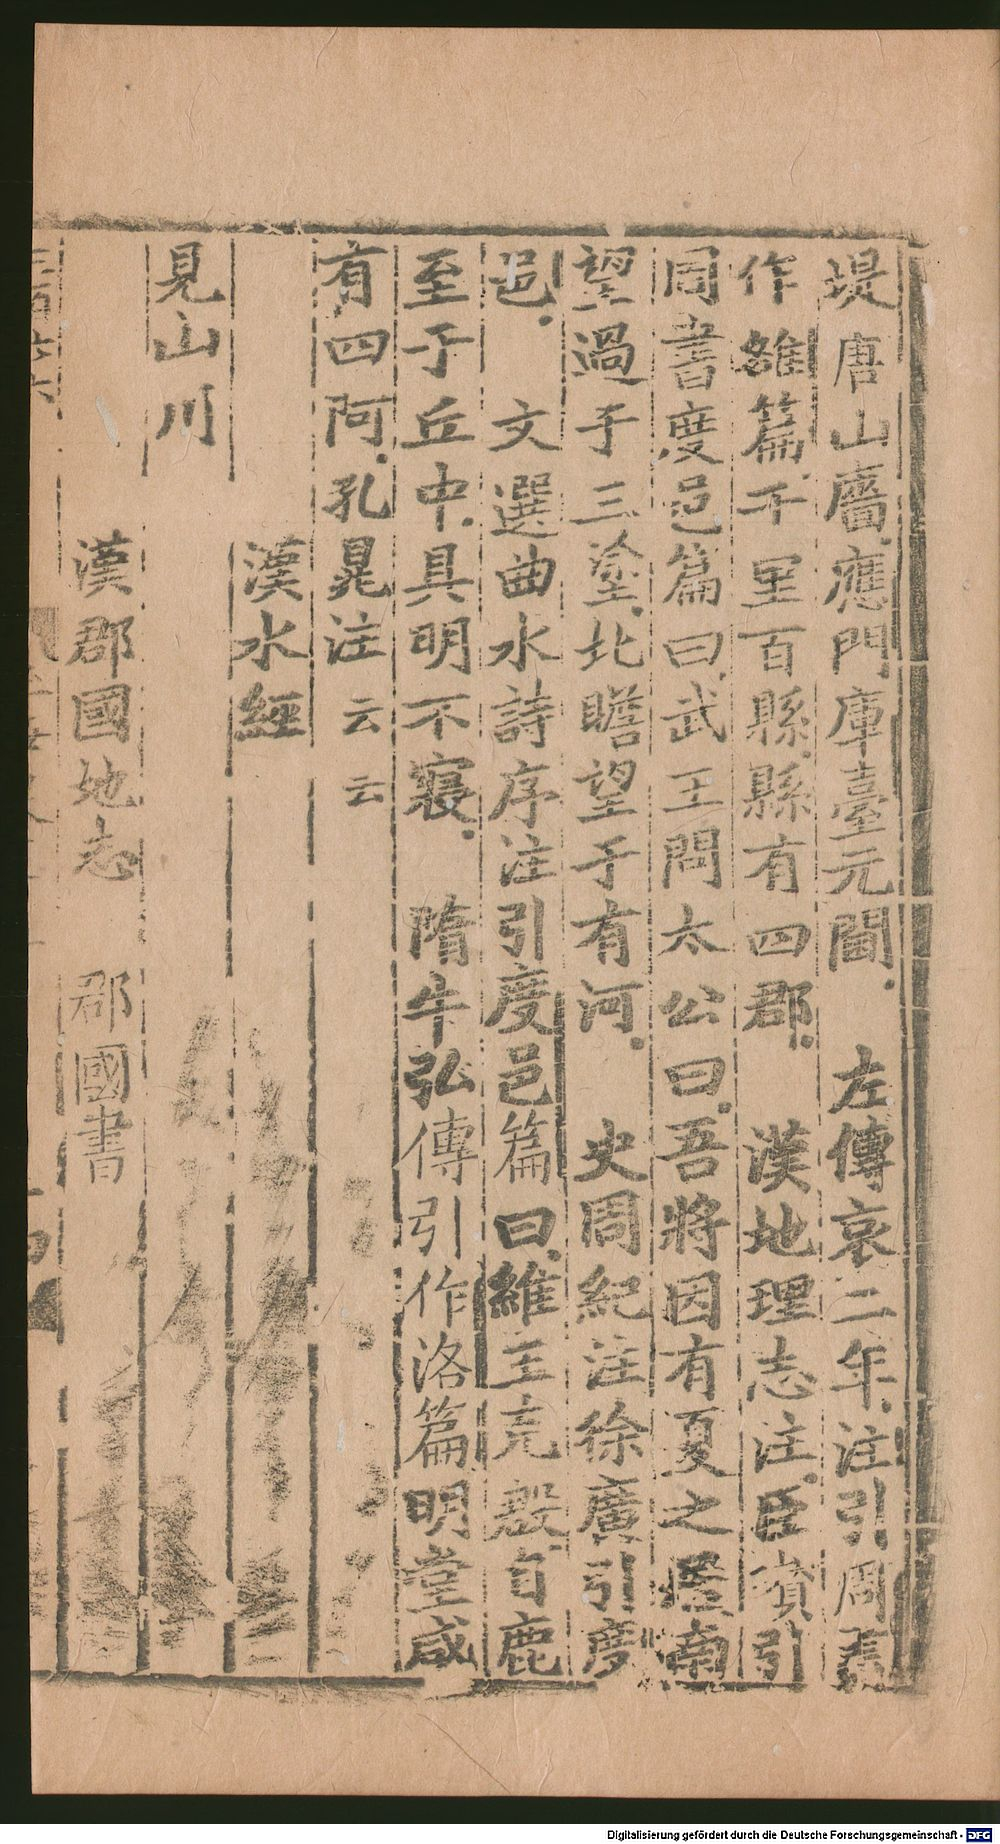 堤唐山廧應門庫臺元閫 左傳哀二年注引周書
作雒篇千里百縣縣有四郡 漢地理志注臣瓚引
周書度邑篇曰武王問太公曰吾將因有夏之居南
望過于三塗北瞻望于有河 史周紀注徐廣引度
邑 文選曲水詩序注引度邑篇曰維王克殷自鹿
至于丘中具明不寢 隋牛弘傳引作洛篇明堂咸
有四阿孔晁注云云
漢水經
見山川
漢郡國地志 郡國書
Digitalisierung gefördert durch die Deutsche Forschungsgemeinschaft - DFG